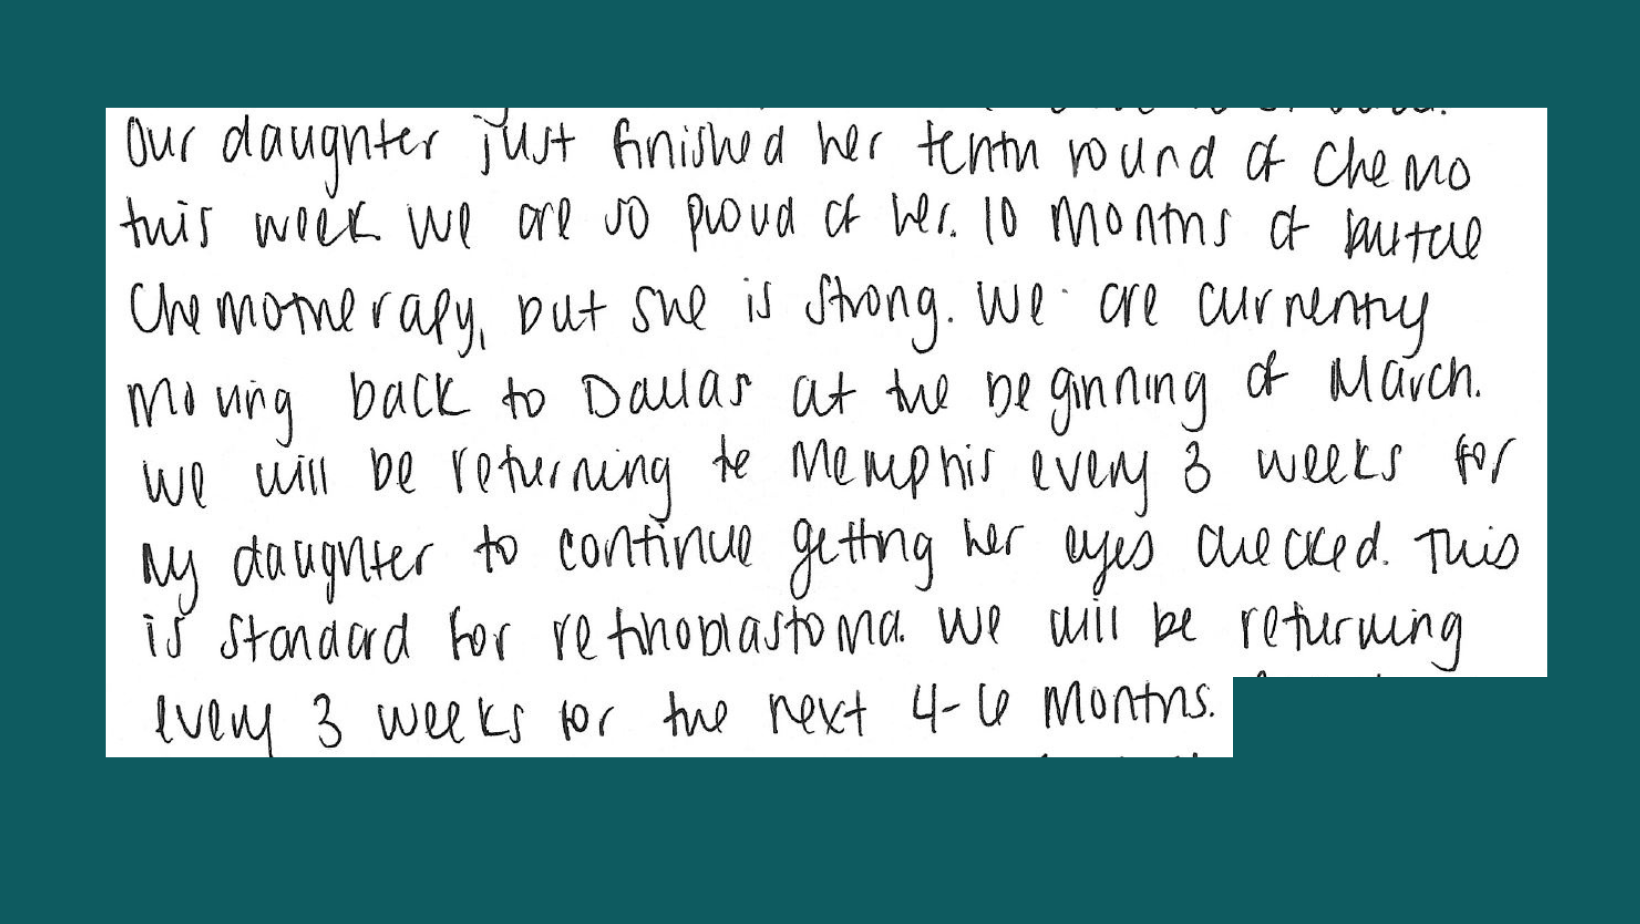 Our daughter just finished her tenth round of chemo
this week we are so proud of her. 10 months of
chemotherapy, but she is strong. We are currently
moving back to Dallas at the beginning of March.
we will be returning to Memphis every 3 weeks for
my daughter to continue getting her eyes checked. This
is standard for retinoblastoma. we will be returning
every 3 weeks for the next 4-6 months.